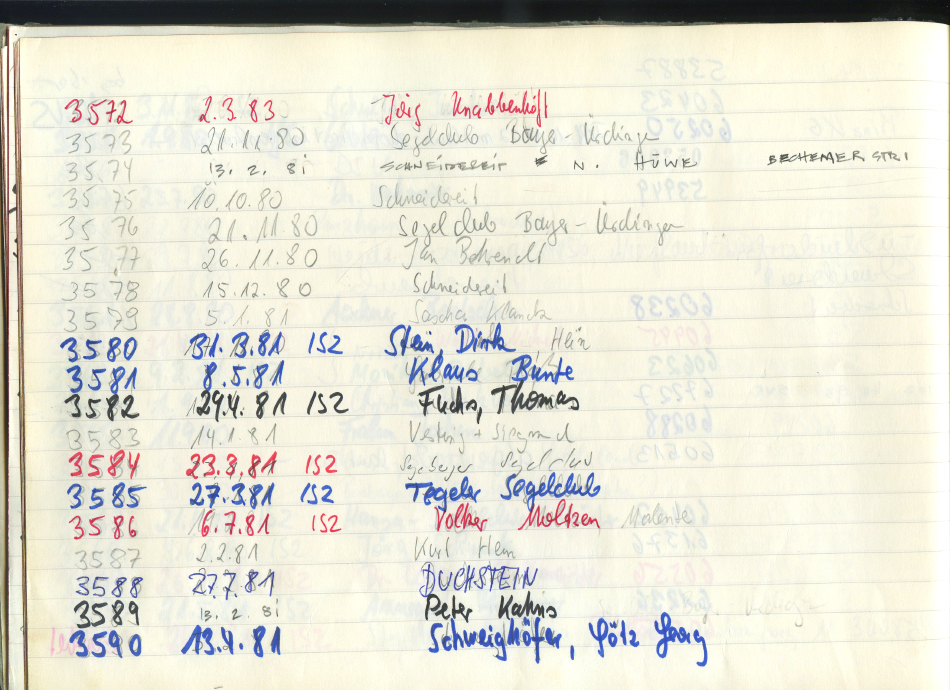 3572 2.3.83 Jörg Knabbenhöft
3573 21.11.80 Segelclub Bayer-Uerdingen
3574 13.2.81 SCHNEIDEREIT N. HÜWE BECHEMER STR 1
3575 10.10.80 Schneidereit
3576 21.11.80 Segelclub Bayer-Uerdingen
3577 26.11.80 Jan Behrendt
3578 15.12.80 Schneidereit
3579 5.1.81 Sascha
3580 81 152 Stein, Dirk, Hein
3581 8.5.81 Klaus Bunte
3582 29.4.81 152 Fuchs, Thomas
3583 14.1.81
3584 23.3.81 152
3585 27.3.81 152 Tegeler Segelclub
3586 6.7.81 152 Volker Moltzen Malente
3587 2.2.81 Kurt Hein
3588 27.7.81 DUCHSTEIN
3589 13.2.81 Peter Kahns
3590 13.4.81 Schweighöfer, Götz Georg